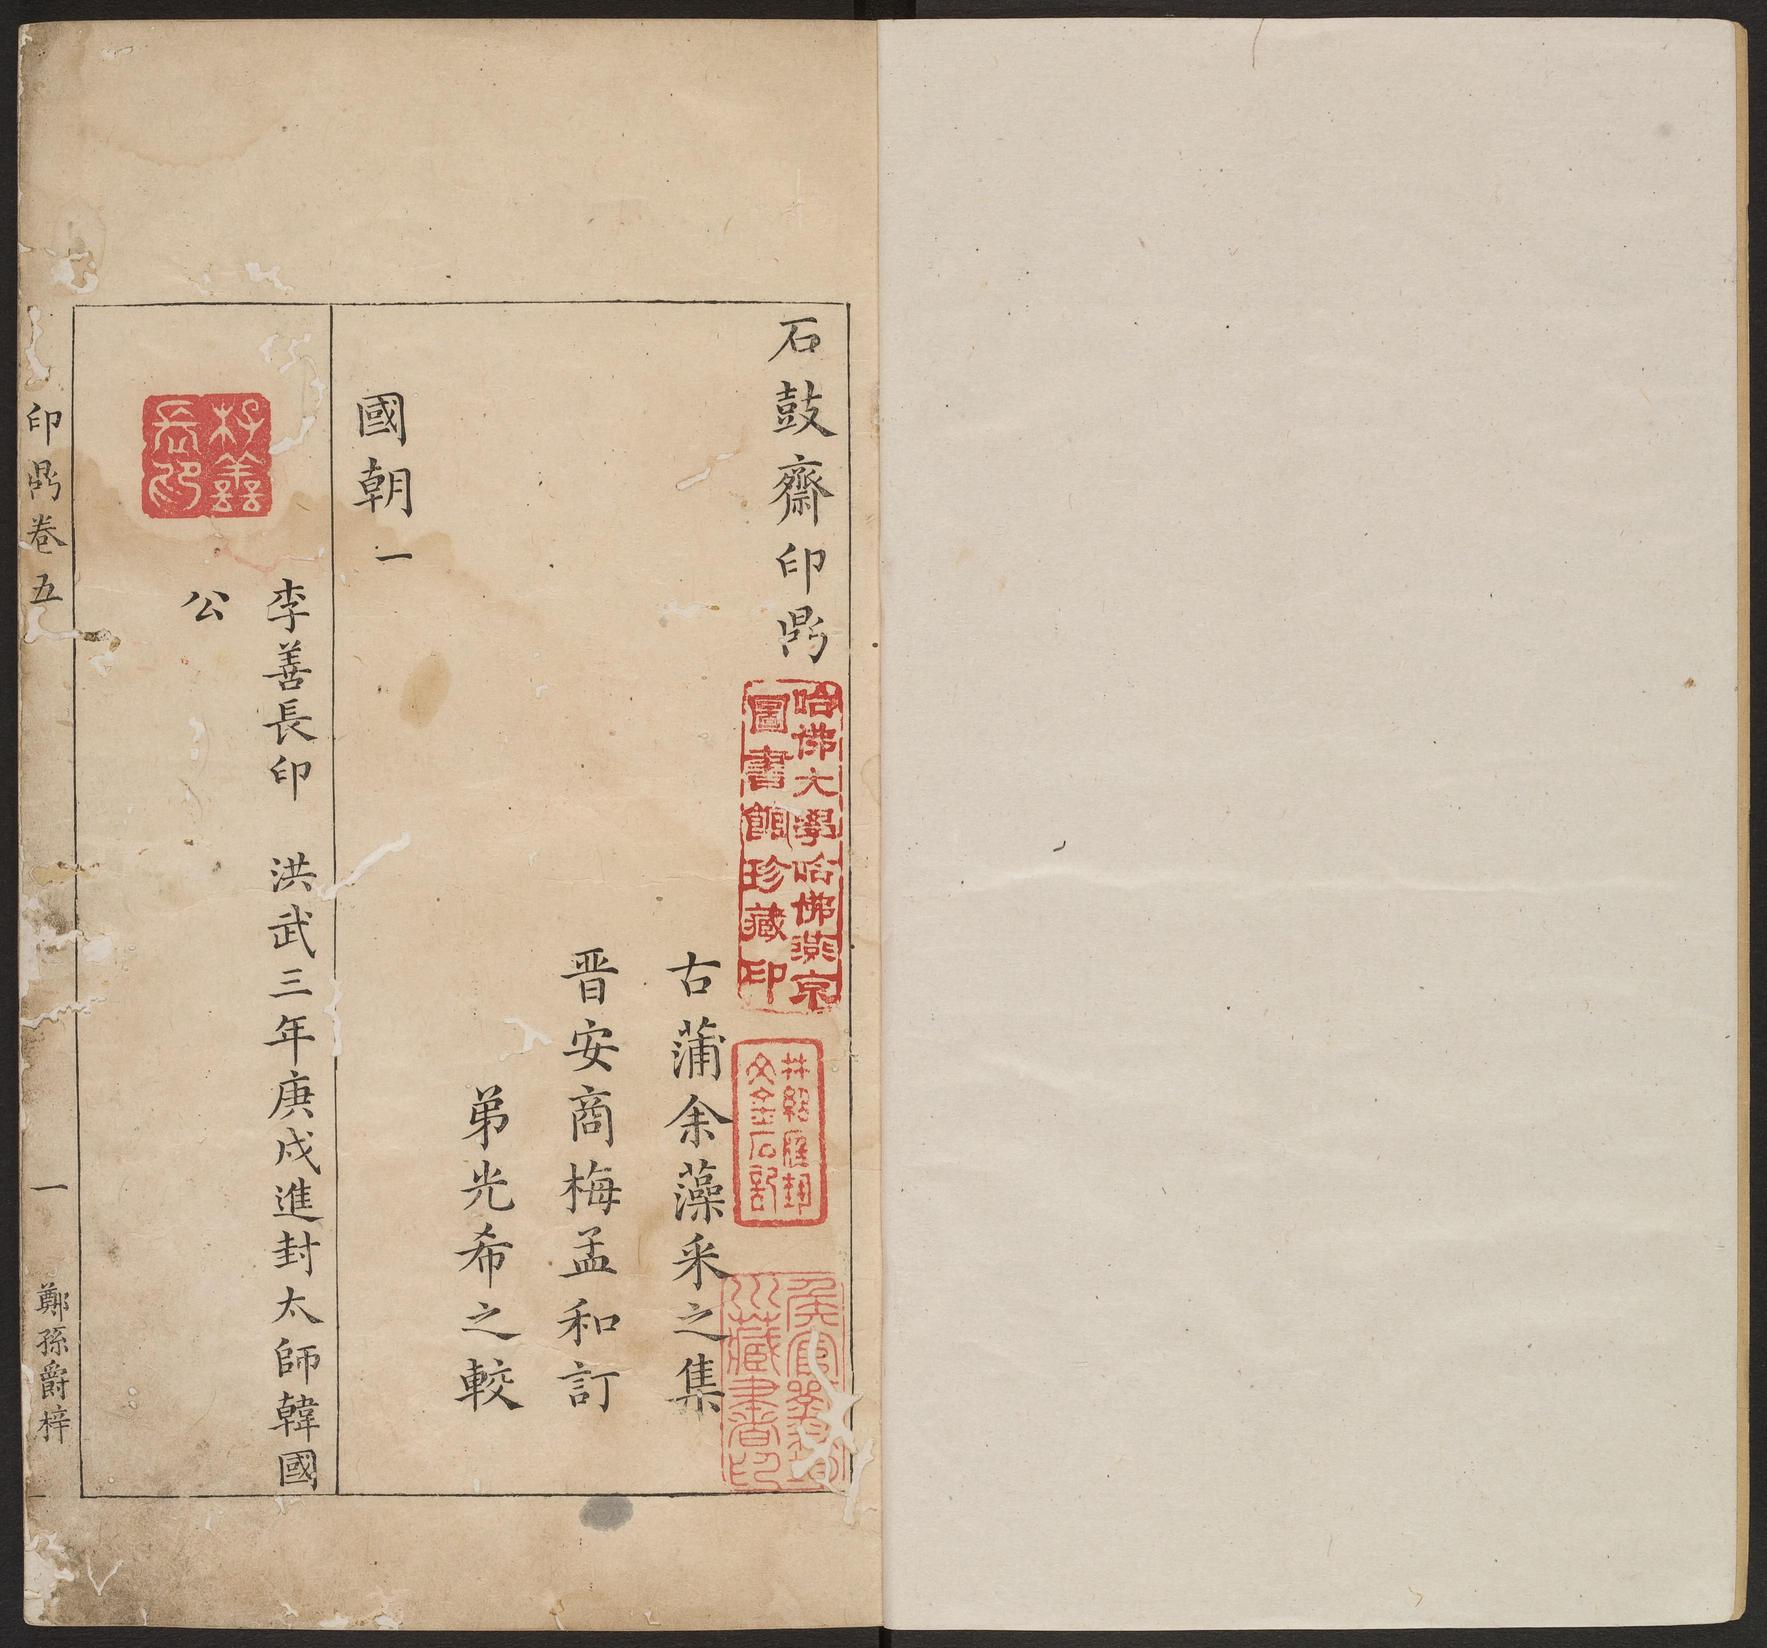 石鼓齋印鼎
哈佛大學哈佛燕京
圖書館珍藏印
藏書印
古蒲余藻采之集
晋安商梅孟和訂
弟光希之較
國朝一
李善長印
李善長印 洪武三年庚戌進封太師韓國
公
印鼎卷五 一 鄭孫爵梓